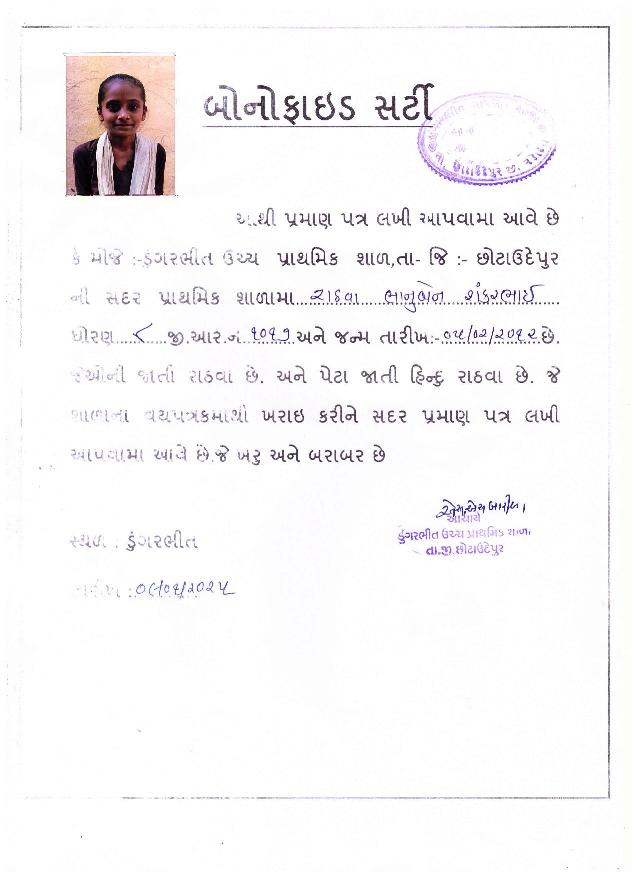 બોનોફાઇડ સર્ટી
આથી પ્રમાણ પત્ર લખી આપવામા આવે છે
કે મોજે :-ડુંગરભીત ઉચ્ચ પ્રાથમિક શાળ,તા- જિ :- છોટાઉદેપુર
ની સદર પ્રાથમિક શાળામા રાઠવા ભાનુબેન શંકરભાઈ
ધોરણ ૮ જી.આર.નં ૧૦૧૭ અને જન્મ તારીખ:- ૦૫/૦૨/૨૦૧૨ છે.
જેઓની જાતી રાઠવા છે. અને પેટા જાતી હિન્દુ રાઠવા છે. જે
શાળાના વયપત્રકમાથી ખરાઇ કરીને સદર પ્રમાણ પત્ર લખી
આપવામા આવે છે.જે ખરુ અને બરાબર છે
આચાર્ય
ડુંગરભીત ઉચ્ચ પ્રાથમિક શાળા
તા.જી.છોટાઉદેપુર
સ્થળ : ડુંગરભીત
તારીખ :